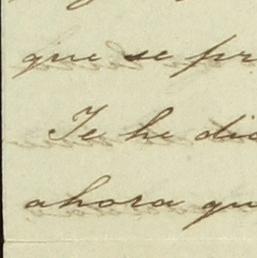 que se pr
Te he dic
ahora qu